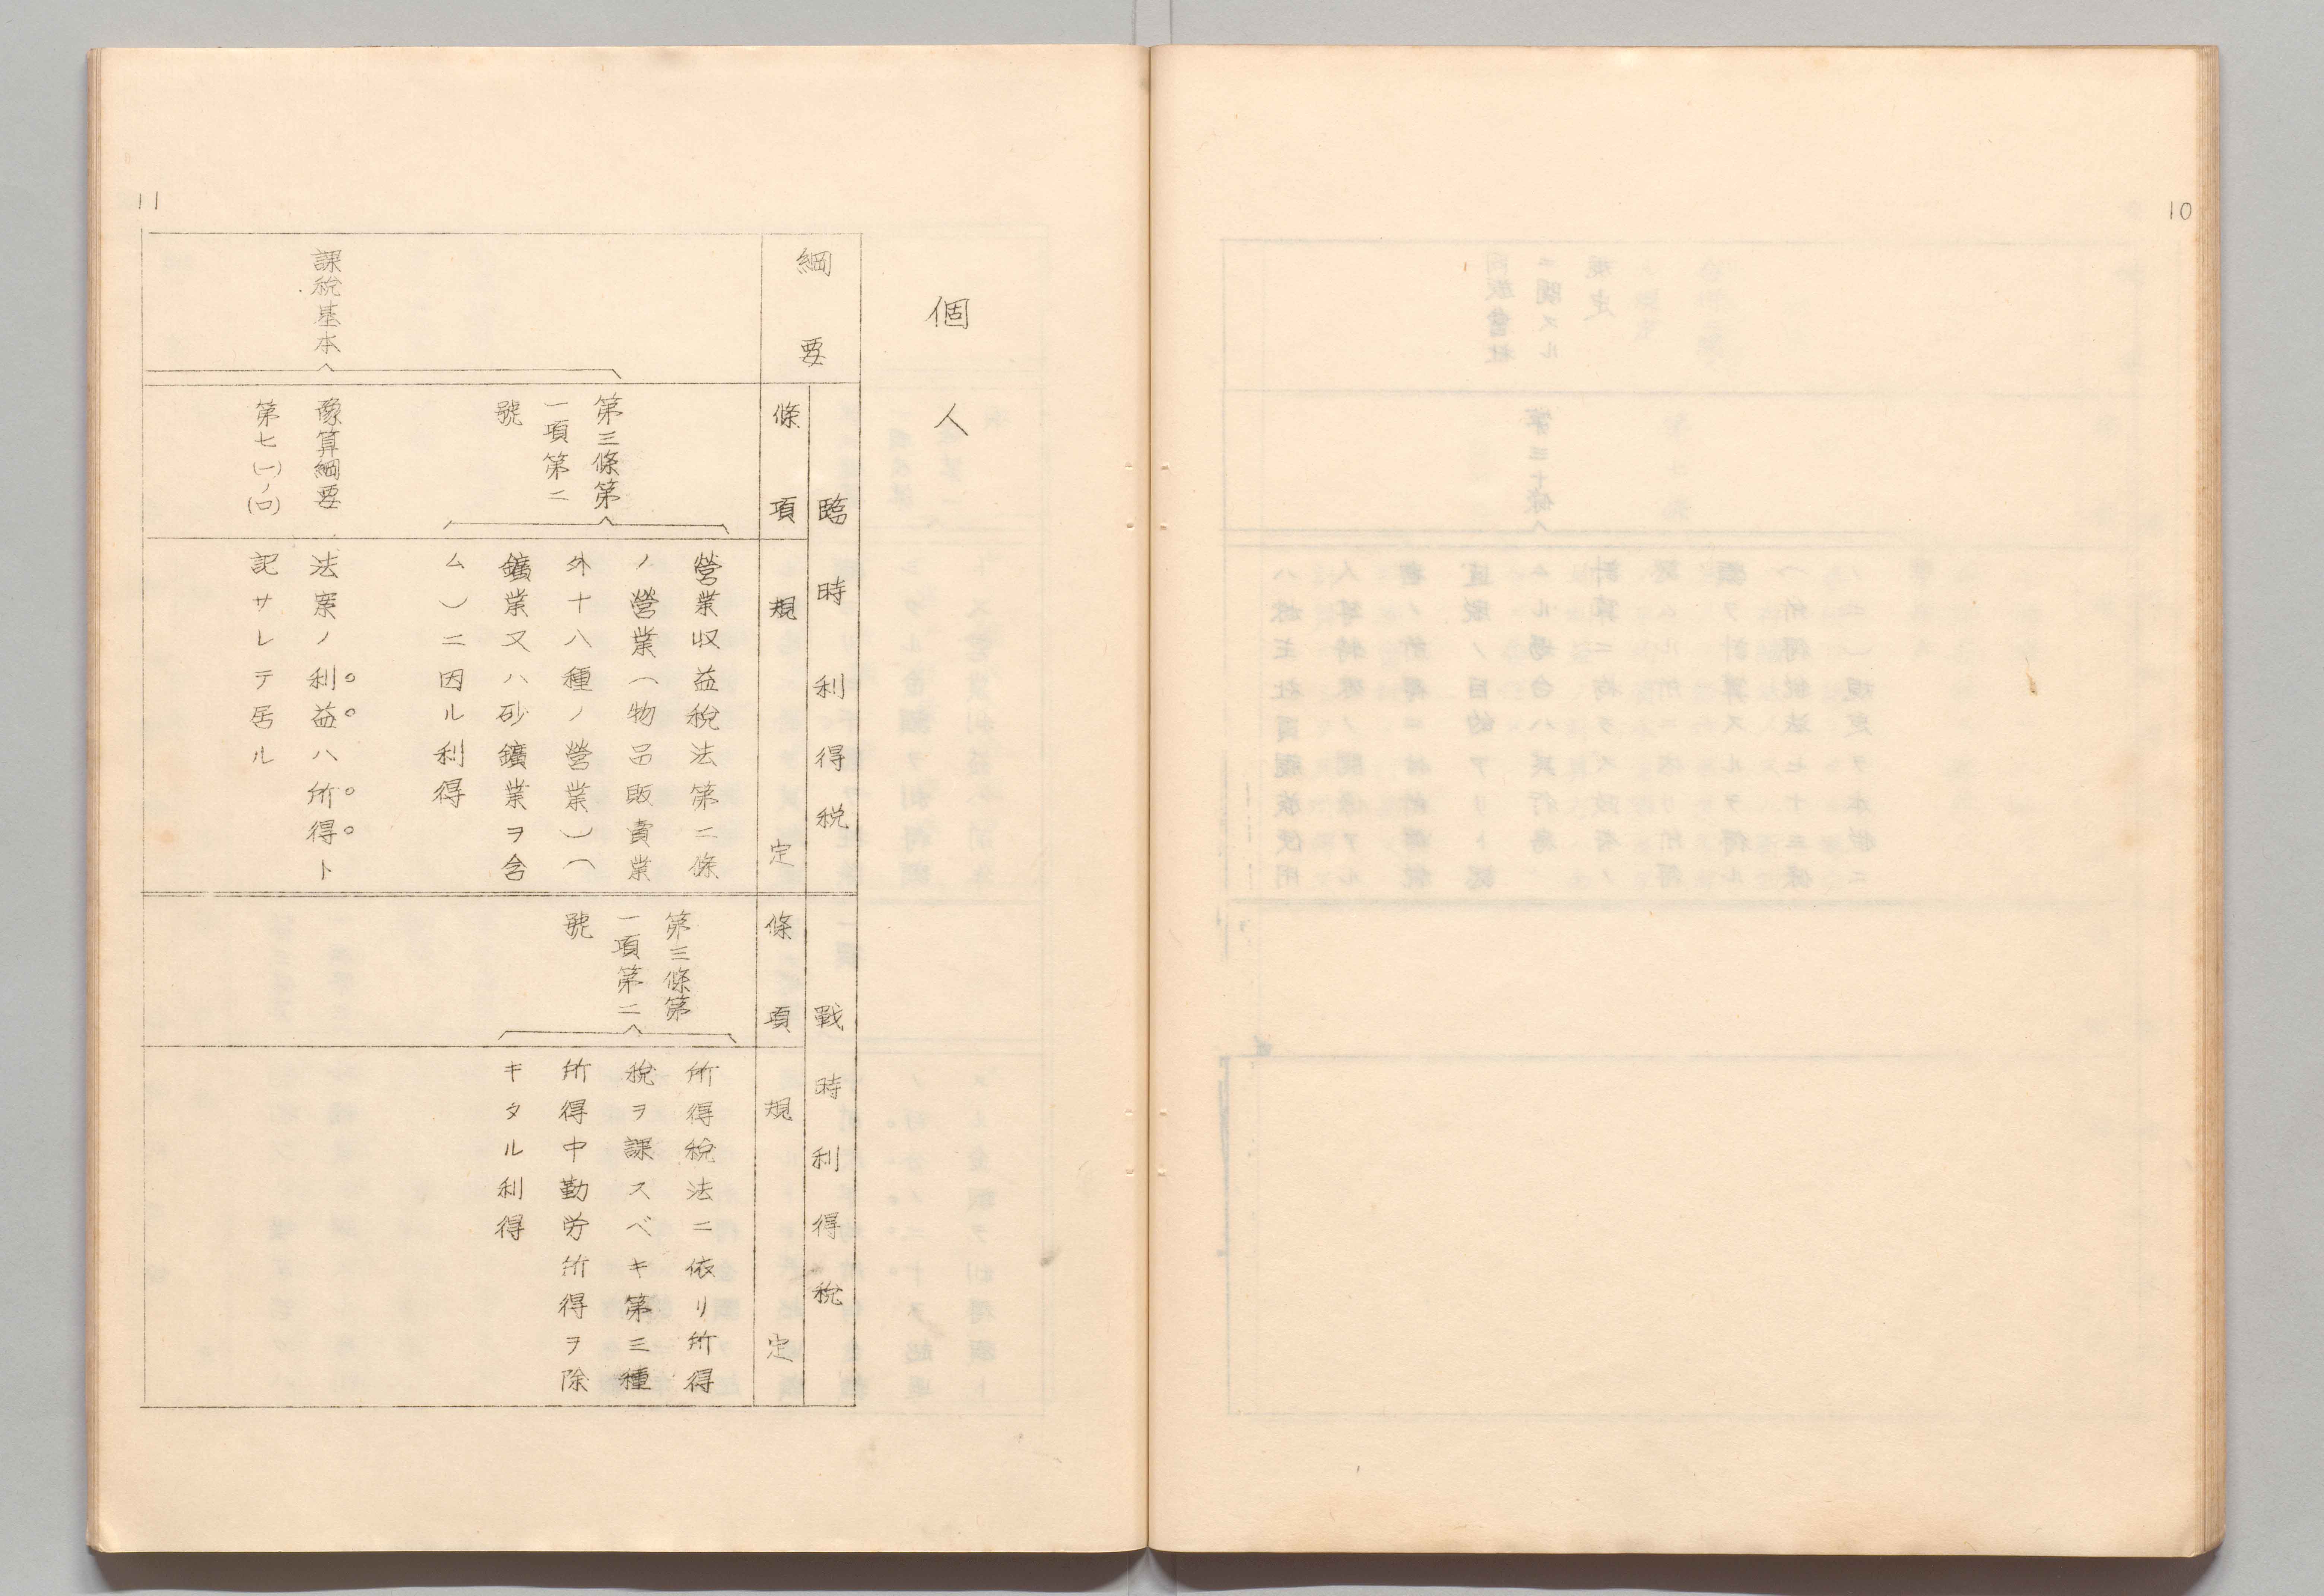 10
11
個人
綱要
臨時利得税
戰時利得税
條項
規定
條項
規定
課税基本
第三條第
一項第二
號
營業収益税法第二條
ノ營業(物品販賣業
外十八種ノ營業)(
鑛業又ハ砂鑛業ヲ含
ム)ニ因ル利得
第三條第
一項第二
號
所得税法ニ依リ所得
税ヲ課スベキ第三種
所得中勤労所得ヲ除
キタル利得
豫算綱要
第七(一)ノ(ロ)
法案ノ利益ハ所得ト
記サレテ居ル